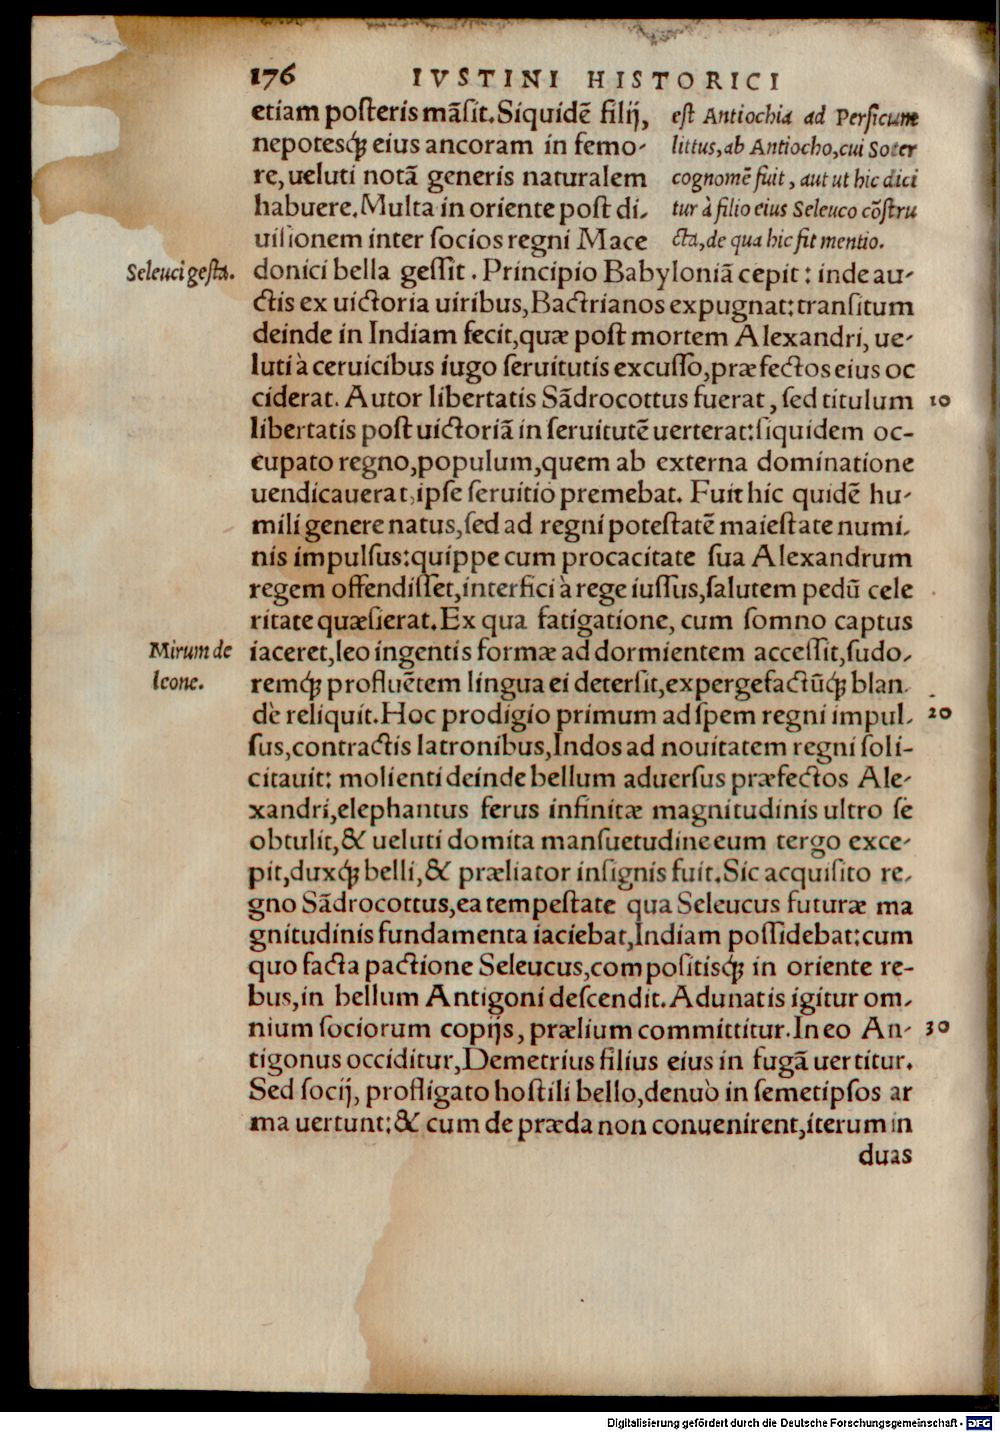 176 IVSTINI HISTORICI
etiam posteris mãsit. Siquidẽ filij,
nepotesq́ꝫ eius ancoram in femo-
re, ueluti notã generis naturalem
habuere. Multa in oriente post di-
uisionem inter socios regni Mace
est Antiochia ad Persicum
littus, ab Antiocho, cui Soter
cognomẽ fuit, aut ut hic dici
tur à filio eius Seleuco cõstru
cta, de qua hic fit mentio.
Seleuci gesta.
donici bella gessit. Principio Babyloniã cepit: inde au-
ctis ex uictoria uiribus, Bactrianos expugnat: transitum
deinde in Indiam fecit, quæ post mortem Alexandri, ue-
luti à ceruicibus iugo seruitutis excusso, præfectos eius oc
ciderat. Autor libertatis Sãdrocottus fuerat, sed titulum 10
libertatis post uictoriã in seruitutẽ uerterat: siquidem oc-
cupato regno, populum, quem ab externa dominatione
uendicauerat, ipse seruitio premebat. Fuit hic quidẽ hu-
mili genere natus, sed ad regni potestatẽ maiestate numi-
nis impulsus: quippe cum procacitate sua Alexandrum
regem offendisset, interfici à rege iussus, salutem pedũ cele
ritate quæsierat. Ex qua fatigatione, cum somno captus
Mirum de
leone.
iaceret, leo ingentis formæ ad dormientem accessit, sudo-
remq́ꝫ profluẽtem lingua ei detersit, expergefactũq́ꝫ blan-
dè reliquit. Hoc prodigio primum ad spem regni impul- 20
sus, contractis latronibus, Indos ad nouitatem regni soli-
citauit: molienti deinde bellum aduersus præfectos Ale-
xandri, elephantus ferus infinitæ magnitudinis ultro se
obtulit, & ueluti domita mansuetudine eum tergo exce-
pit, duxq́ꝫ belli, & præliator insignis fuit. Sic acquisito re-
gno Sãdrocottus, ea tempestate qua Seleucus futuræ ma
gnitudinis fundamenta iaciebat, Indiam possidebat: cum
quo facta pactione Seleucus, compositisq́ꝫ in oriente re-
bus, in bellum Antigoni descendit. Adunatis igitur om-
nium sociorum copijs, prælium committitur. In eo An- 30
tigonus occiditur, Demetrius filius eius in fugã uertitur.
Sed socij, profligato hostili bello, denuò in semetipsos ar
ma uertunt: & cum de præda non conuenirent, iterum in
duas
Digitalisierung gefördert durch die Deutsche Forschungsgemeinschaft - DFG